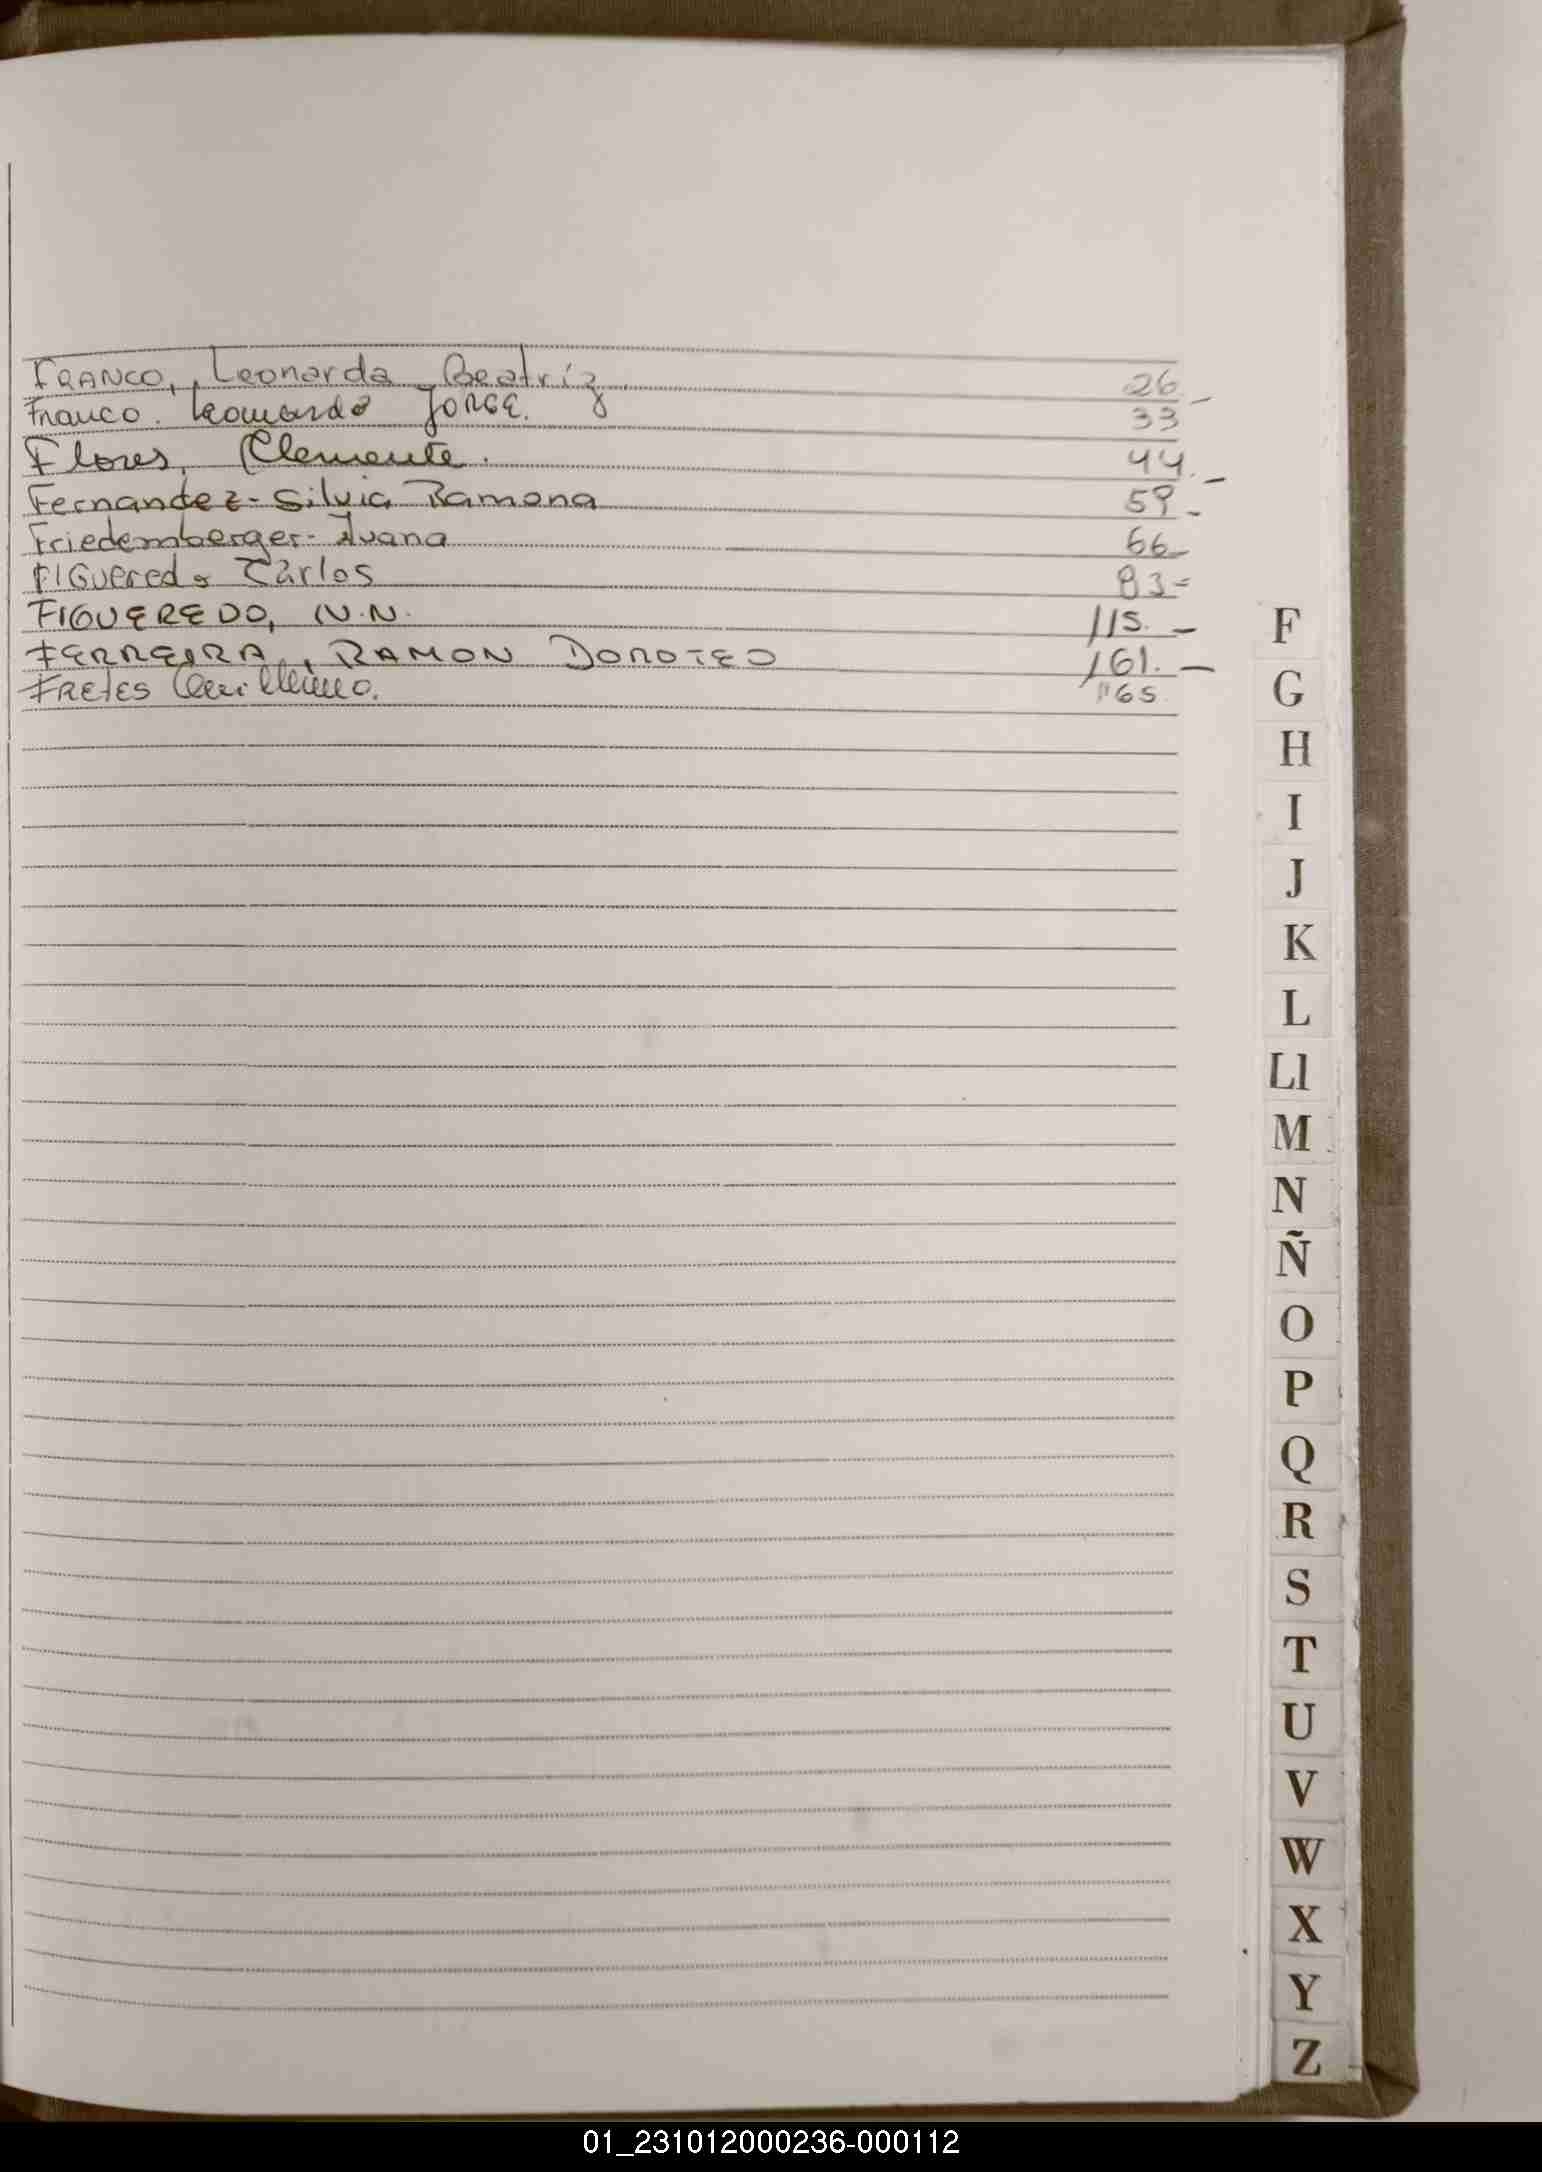 FRANCO, Leonarda Beatríz. 26
Franco. Leonardo JORGE. 33 -
Flores, Clemente. 44. -
Fernandez - Silvia Ramona 59 -
Friedemberger - Juana 66 -
FIGueredo Carlos 83 =
FIGUEREDO, N.N. 115. -
FERREIRA, RAMON DOROTEO 161. -
FRETES Guillermo. 165.
F
G
H
I
J
K
L
Ll
M
N
Ñ
O
P
Q
R
S
T
U
V
W
X
Y
Z
01_231012000236-000112